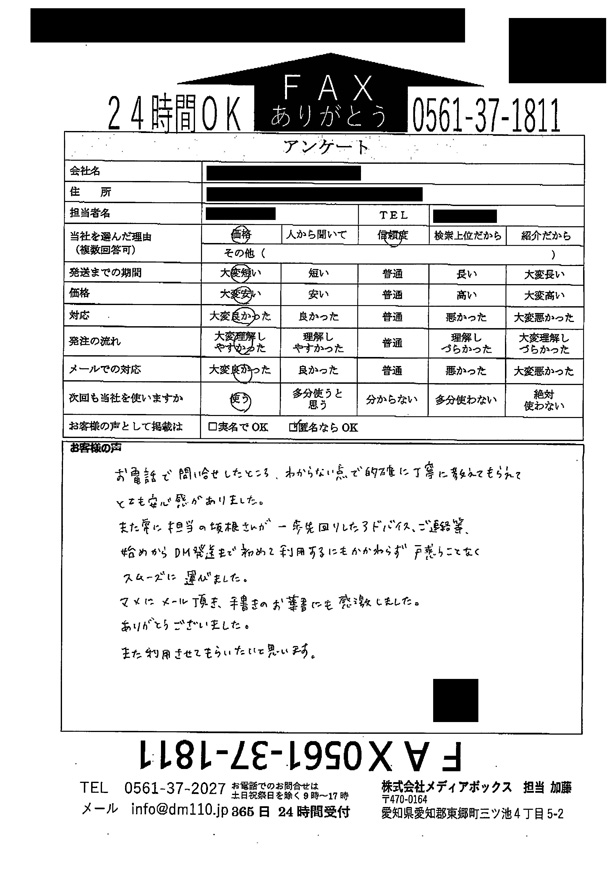 FAX
ありがとう
24時間OK
0561-37-1811
アンケート
会社名
住 所
担当者名 TEL
当社を選んだ理由
（複数回答可）
価格 人から聞いて 信頼度 検索上位だから 紹介だから
その他（ ）
発送までの期間 大変短い 短い 普通 長い 大変長い
価格 大変安い 安い 普通 高い 大変高い
対応 大変良かった 良かった 普通 悪かった 大変悪かった
発注の流れ 大変理解しやすかった 理解しやすかった 普通 理解しづらかった 大変理解しづらかった
メールでの対応 大変良かった 良かった 普通 悪かった 大変悪かった
次回も当社を使いますか 使う 多分使うと思う 分からない 多分使わない 絶対使わない
お客様の声として掲載は □実名でOK ☑匿名ならOK
お客様の声
お電話で問い合せしたところ、わからない点で的確に丁寧に教えてもらえて
とても安心感がありました。
また常に担当の坂根さんが一歩先回りしたアドバイス、ご連絡等、
始めからDM発送まで初めて利用するにもかかわらず戸惑うことなく
スムーズに運びました。
マメにメール頂き、手書きのお葉書にも感激しました。
ありがとうございました。
また利用させてもらいたいと思います。
FAX0561-37-1811
TEL 0561-37-2027 お電話でのお問合せは
土日祝祭日を除く9時～17時
メール info@dm110.jp 365日 24時間受付
株式会社メディアボックス 担当 加藤
〒470-0164
愛知県愛知郡東郷町三ツ池4丁目5-2